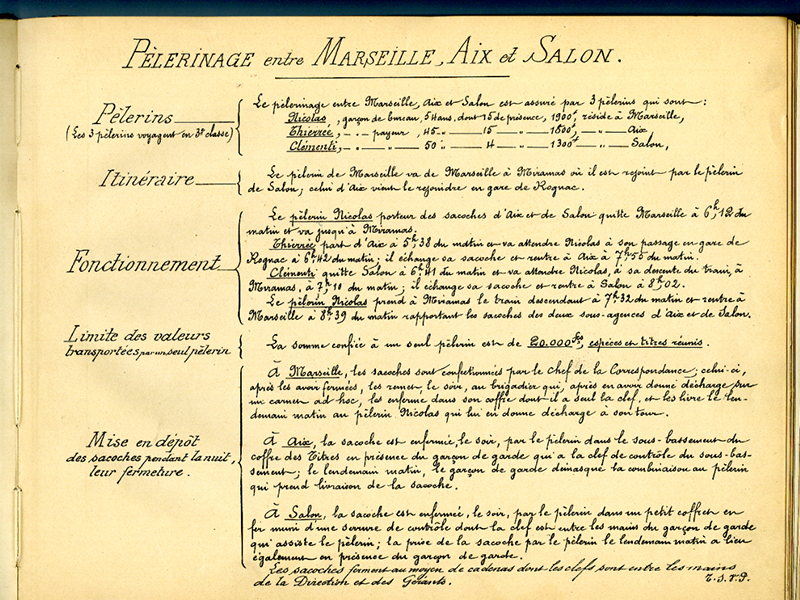 PÈLERINAGE entre MARSEILLE, AIX et SALON.
Pèlerins
(Les 3 pèlerins voyagent en 3e classe)
Le pèlerinage entre Marseille, Aix et Salon est assuré par 3 pèlerins qui sont :
Nicolas, garçon de bureau, 54 ans, dont 15 de présence, 1900f, réside à Marseille,
Thierrée, - . - payeur, 45 - . - 15 - . - 1800f, - . - Aix
Clémenti, - . - 50 - . - 4 - . - 1300f - . - Salon,
Itinéraire
Le pèlerin de Marseille va de Marseille à Miramas où il est rejoint par le pèlerin
de Salon; celui d'Aix vient le rejoindre en gare de Rognac.
Fonctionnement
Le pèlerin Nicolas porteur des sacoches d'Aix et de Salon quitte Marseille à 6h,12 du
matin et va jusqu'à Miramas.
Thierrée part d'Aix à 5h,38 du matin et va attendre Nicolas à son passage en gare de
Rognac à 6h,42 du matin; il échange sa sacoche et rentre à Aix à 7h,55 du matin.
Clémenti quitte Salon à 6h,41 du matin et va attendre Nicolas, à sa descente du train, à
Miramas, à 7h,10 du matin; il échange sa sacoche et rentre à Salon à 8h,02.
Le pèlerin Nicolas prend à Miramas le train descendant à 7h,32 du matin et rentre à
Marseille à 8h,39 du matin rapportant les sacoches des deux sous-agences d'Aix et de Salon.
Limite des valeurs
transportées par un seul pèlerin
La somme confiée à un seul pèlerin est de 20.000frs, espèces et titres réunis.
Mise en dépôt
des sacoches pendant la nuit,
leur fermeture.
À Marseille, les sacoches sont confectionnées par le chef de la Correspondance; celui-ci,
après les avoir fermées, les remet, le soir, au brigadier qui, après en avoir donné décharge sur
un carnet ad hoc, les enferme dans son coffre dont il a seul la clef, et les livre le len-
demain matin au pèlerin Nicolas qui lui en donne décharge à son tour.
À Aix, la sacoche est enfermée, le soir, par le pèlerin dans le sous-bassement du
coffre des Titres en présence du garçon de garde qui a la clef de contrôle du sous-bas-
sement; le lendemain matin, le garçon de garde démasque la combinaison au pèlerin
qui prend livraison de la sacoche.
À Salon, la sacoche est enfermée, le soir, par le pèlerin dans un petit coffret en
fer muni d'une serrure de contrôle dont la clef est entre les mains du garçon de garde
qui assiste le pèlerin; la prise de la sacoche par le pèlerin le lendemain matin a lieu
également en présence du garçon de garde.
Les sacoches ferment au moyen de cadenas dont les clefs sont entre les mains
de la Direction et des Gérants.
T.S.V.P.